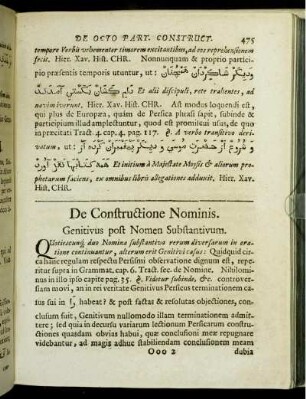 DE OCTO PART. CONSTRUCT. 475
tempore Verbis vehementer timorem excitantibus, ad eos reprehensionem
fecit. Hier. Xav. Hist. CHR. Nonnunquam & proprio partici-
pio præsentis temporis utuntur, ut:
Et alii discipuli, rete trahentes, ad
navim iverunt. Hier. Xav. Hist. CHR. Ast modus loquendi est,
qui plus de Europæa, quàm de Persica phrasi sapit, subinde &
participium illud amplectuntur, quod est promiscui usus, de quo
in præcitati Tract. 4. cap. 4. pag. 117. A verbo transitivo deri-
vatum, ut:
Et initium à Majestate Mosis & aliorum pro-
phetarum faciens, ex omnibus libris allegationes adducit. Hier. Xav.
Hist. CHR.
De Constructione Nominis.
Genitivus post Nomen Substantivum.
Quotiescunq; duo Nomina substantiva rerum diversarum in ora-
tione continuantur, alterum erit Genitivi casus: Quidquid cir-
ca hanc regulam respectu Persismi observatione dignum est, repe-
ritur supra in Grammat. cap. 6. Tract. sec. de Nomine. Nihilomi-
nus in illo ipso capite pag. 35. Videtur subinde, &c. controver-
sum movi, an in rei veritate Genitivus Persicus terminationem ca-
sus sui in habeat? & post factas & resolutas objectiones, con-
clusum fuit, Genitivum nullomodo illam terminationem admit-
tere; sed quia in decursu variarum lectionum Persicarum constru-
ctiones quædam obviæ habui, quæ conclusioni meæ repugnare
videbantur, ad magis adhuc stabiliendam conclusionem meam
Ooo 2 dubia